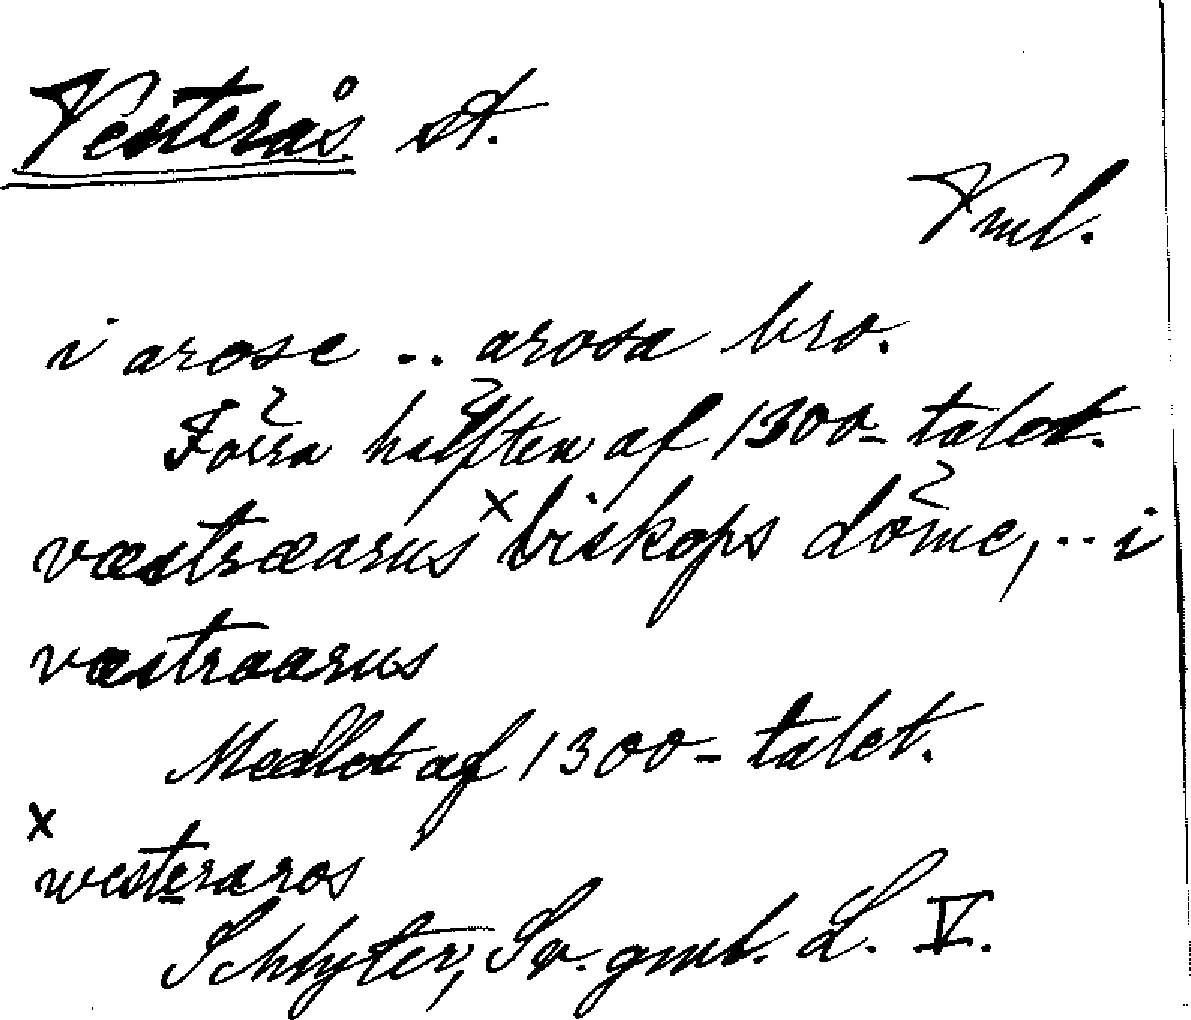 Vesterås st.
Vml.
i arose .. arosa bro.
Förra hälften af 1300-talet.
væstræarus x biskops döme, .. i
væstraarus
Medlet af 1300-talet.
x
westeraros
Schlyter, Sv. gml. L. V.